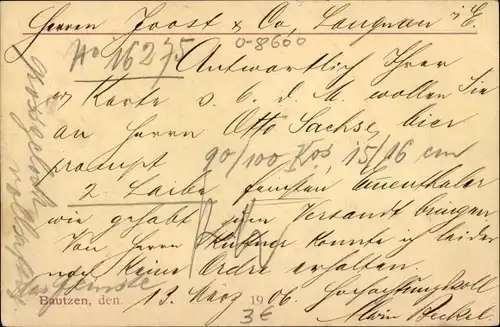 Herren Joost & Co, Langnau i/E.
No 16275
0-8600
Antwortlich Ihrer
Karte v. 6. d. M. wollen Sie
an Herrn Otto Sachse, hier
prompt 90/100 Kos, 15/16 cm
2 Laibe feinsten Emmenthaler
wie gehabt zum Versandt bringen
Von Herrn Hüttner konnte ich leider
noch keine Ordre erhalten.
Hochachtungsvoll
Bautzen, den 13. März 1906.
Alwin Reckel.
3€